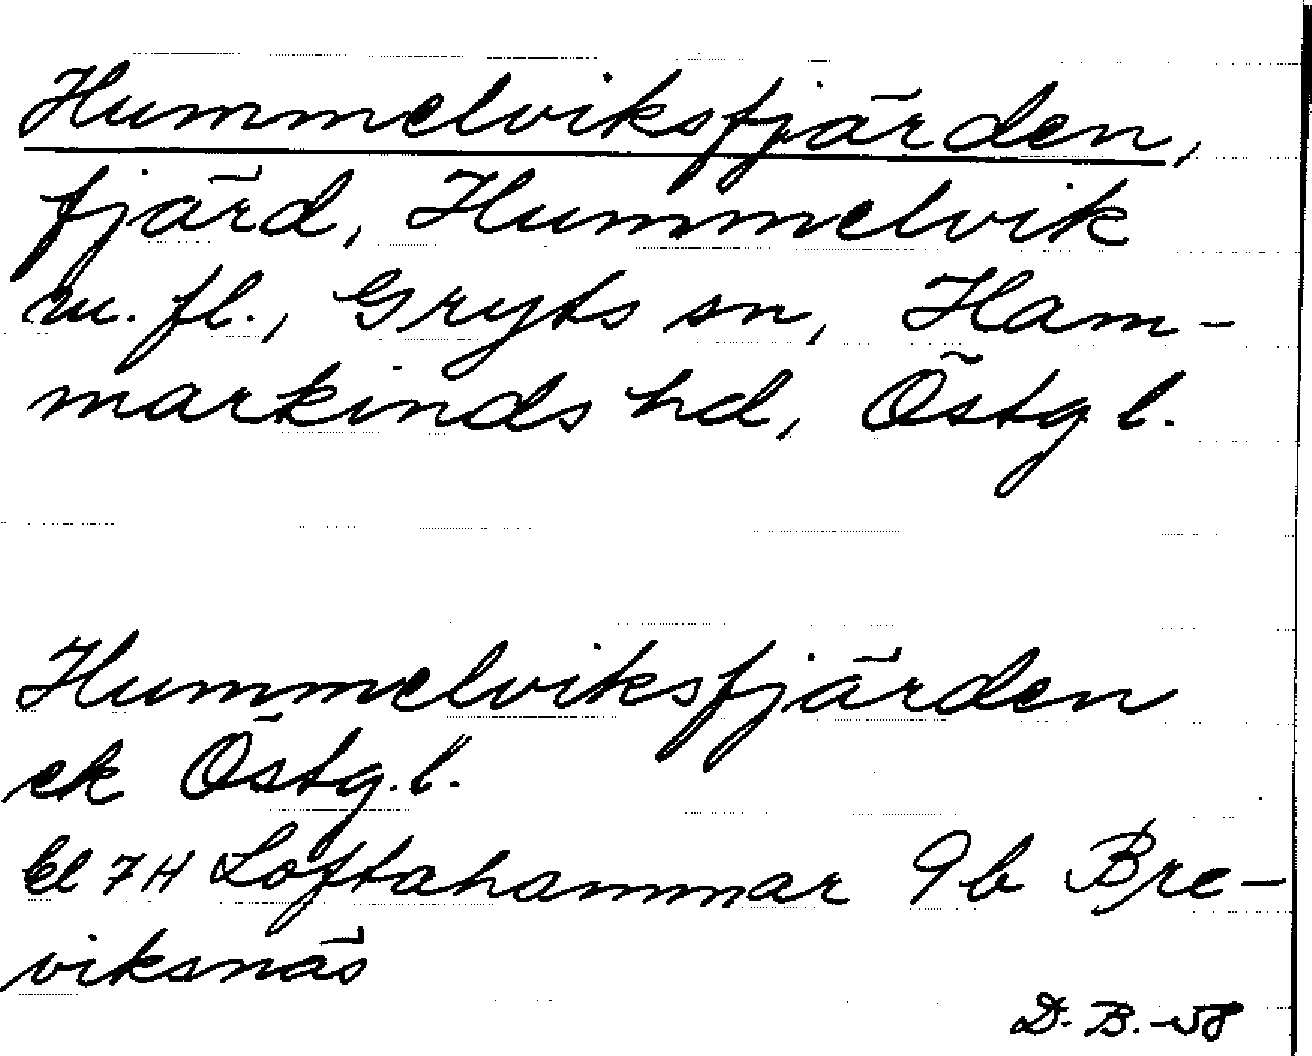 Hummelviksfjärden,
fjärd, Hummelvik
m. fl., Gryts sn, Ham-
markinds hd, Östg l.
Hummelviksfjärden
ek Östg. l.
Bl 7H Loftahammar 9b Bre-
viksnäs
D. B. -58